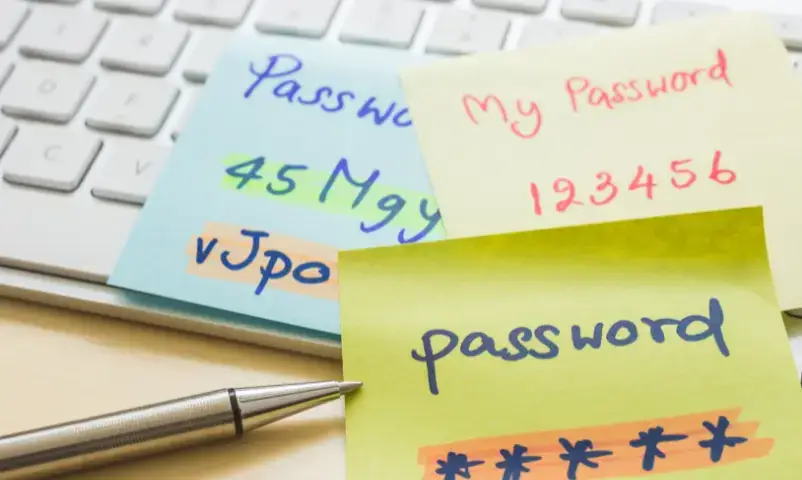 Passwo
45Mgy
vJpo
My Password
123456
password
*****